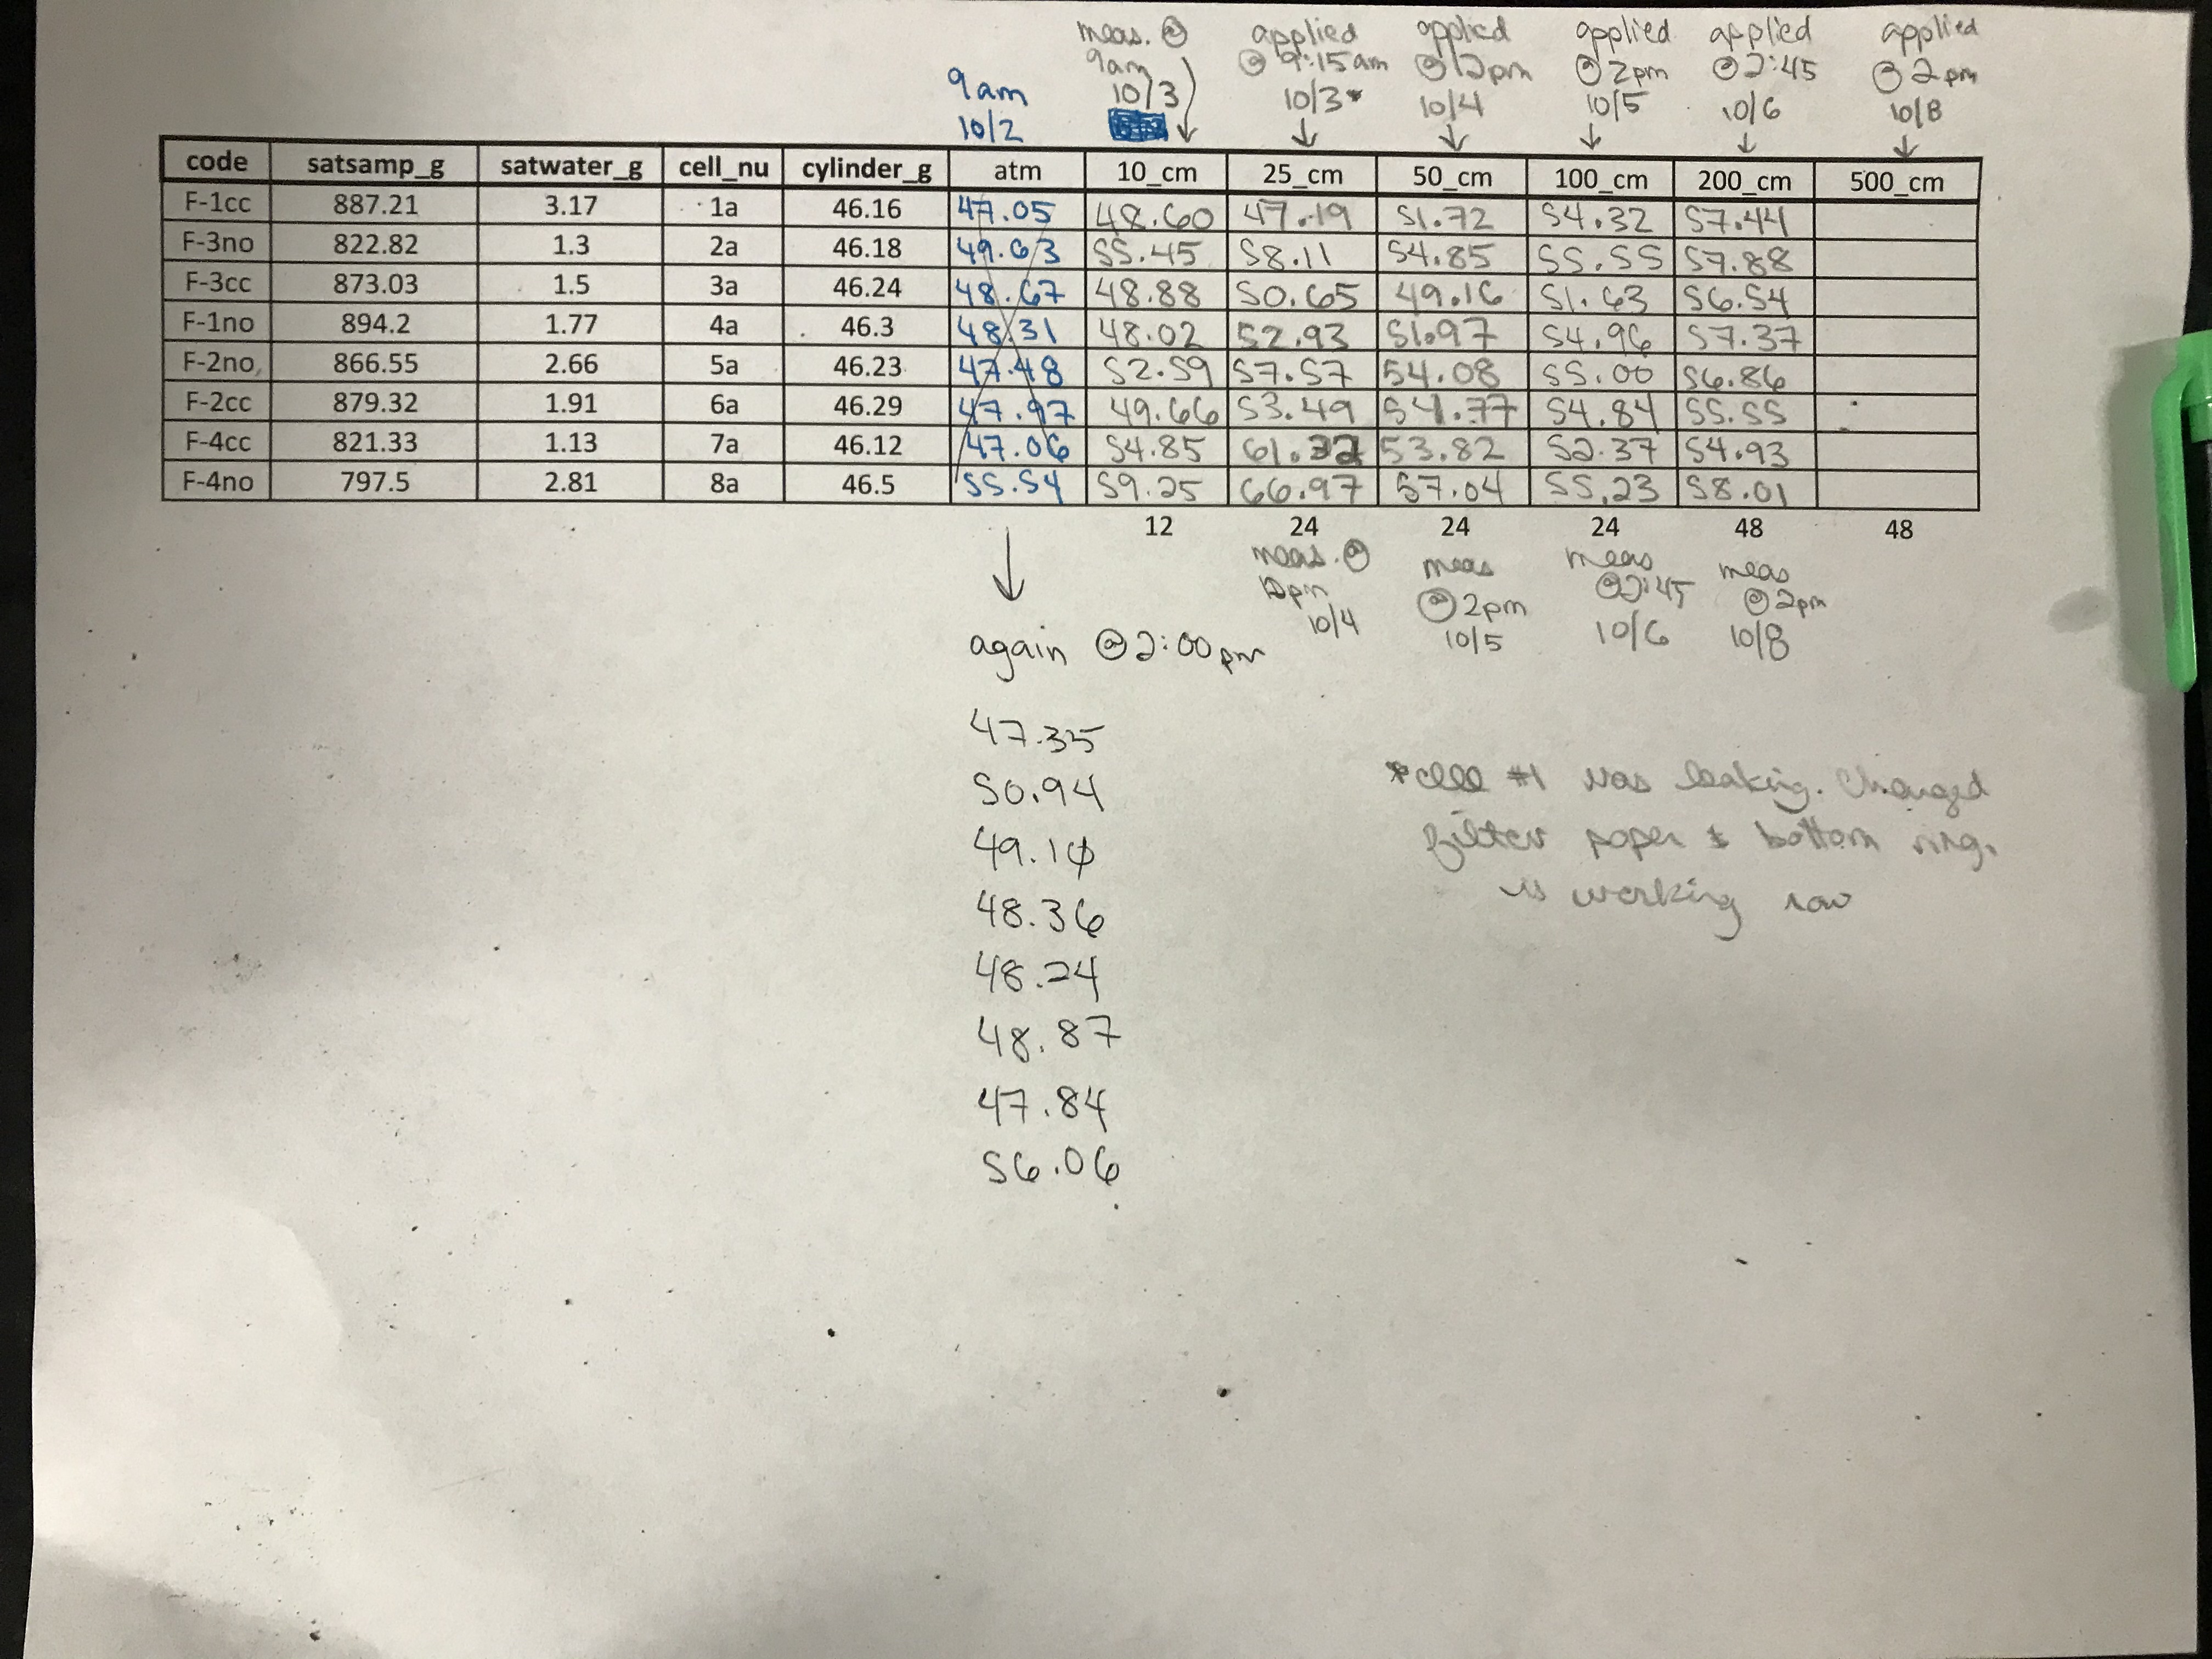 meas. @ applied applied applied applied applied
9am @ 9:15am @ 12pm @ 2pm @ 2:45 @ 2pm
9am 10/3 10/3* 10/4 10/5 10/6 10/8
10/2
code satsamp_g satwater_g cell_nu cylinder_g atm 10_cm 25_cm 50_cm 100_cm 200_cm 500_cm
F-1cc 887.21 3.17 1a 46.16 47.05 48.60 47.19 51.72 54.32 57.44
F-3no 822.82 1.3 2a 46.18 49.63 55.45 58.11 54.85 55.55 57.88
F-3cc 873.03 1.5 3a 46.24 48.67 48.88 50.65 49.16 51.63 56.54
F-1no 894.2 1.77 4a 46.3 48.31 48.02 52.93 51.97 54.96 57.37
F-2no 866.55 2.66 5a 46.23 47.48 52.59 57.57 54.08 55.00 56.86
F-2cc 879.32 1.91 6a 46.29 47.97 49.66 53.49 54.84 55.55
F-4cc 821.33 1.13 7a 46.12 47.06 54.85 53.82 52.37 54.93
F-4no 797.5 2.81 8a 46.5 55.54 59.25 66.97 57.04 55.23 58.01
12 24 24 24 48 48
meas. @ meas meas meas
12pm @ 2pm @2:45 @ 2pm
10/4 10/5 10/6 10/8
again @ 2:00pm
47.35
50.94
49.10
48.36
48.24
48.87
47.84
56.06
*cell #1 was leaking. Changed
filter paper & bottom ring.
is working now